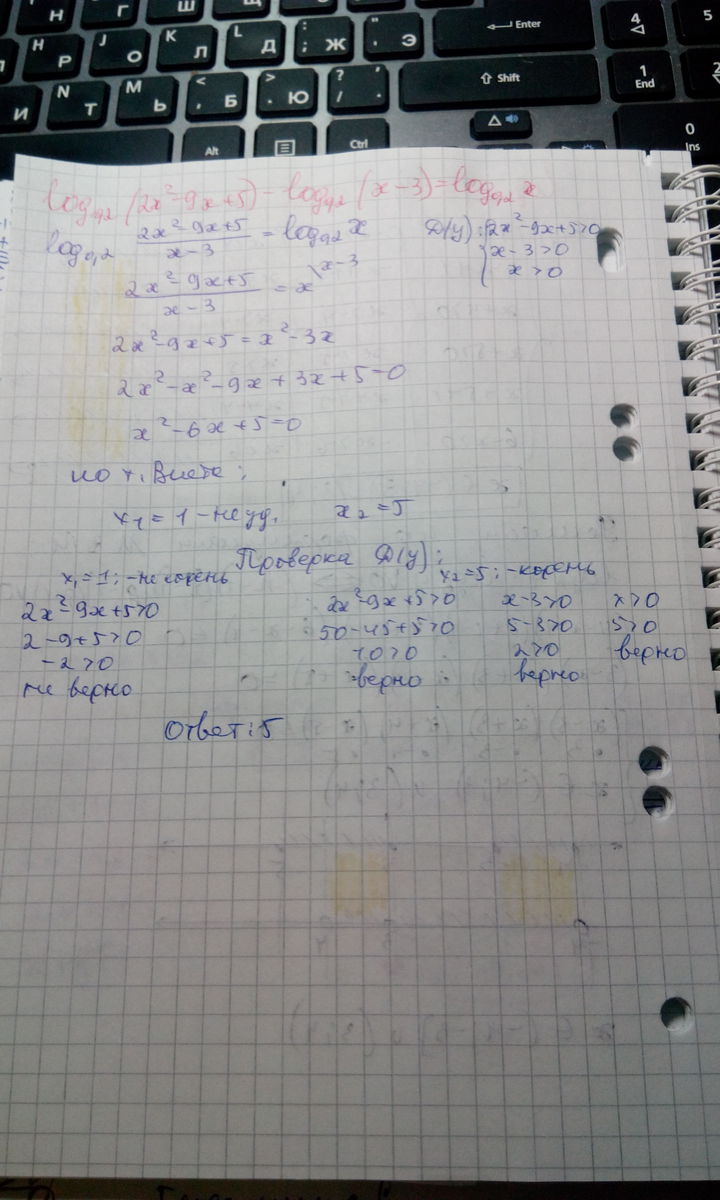 Н Г Ш Щ Enter 4 5
N Р J О K Л L Д : ; Ж " ' Э Shift 1 End
И N Т M Ь < , Б > . Ю ? / . 0 Ins
Alt Ctrl
log₀,₂ (2x²-9x+5) - log₀,₂ (x-3) = log₀,₂ x
log₀,₂ (2x²-9x+5)/(x-3) = log₀,₂ x
Д(y): { 2x²-9x+5>0
x-3>0
x>0
(2x²-9x+5)/(x-3) = x \x-3
2x²-9x+5 = x²-3x
2x²-x²-9x+3x+5=0
x²-6x+5=0
по т. Виета:
x₁=1 - не уд. x₂=5
Проверка Д(y):
x₁=1; - не корень x₂=5; - корень
2x²-9x+5>0 2x²-9x+5>0 x-3>0 x>0
2-9+5>0 50-45+5>0 5-3>0 5>0
-2>0 10>0 2>0 верно
не верно верно верно
Ответ: 5